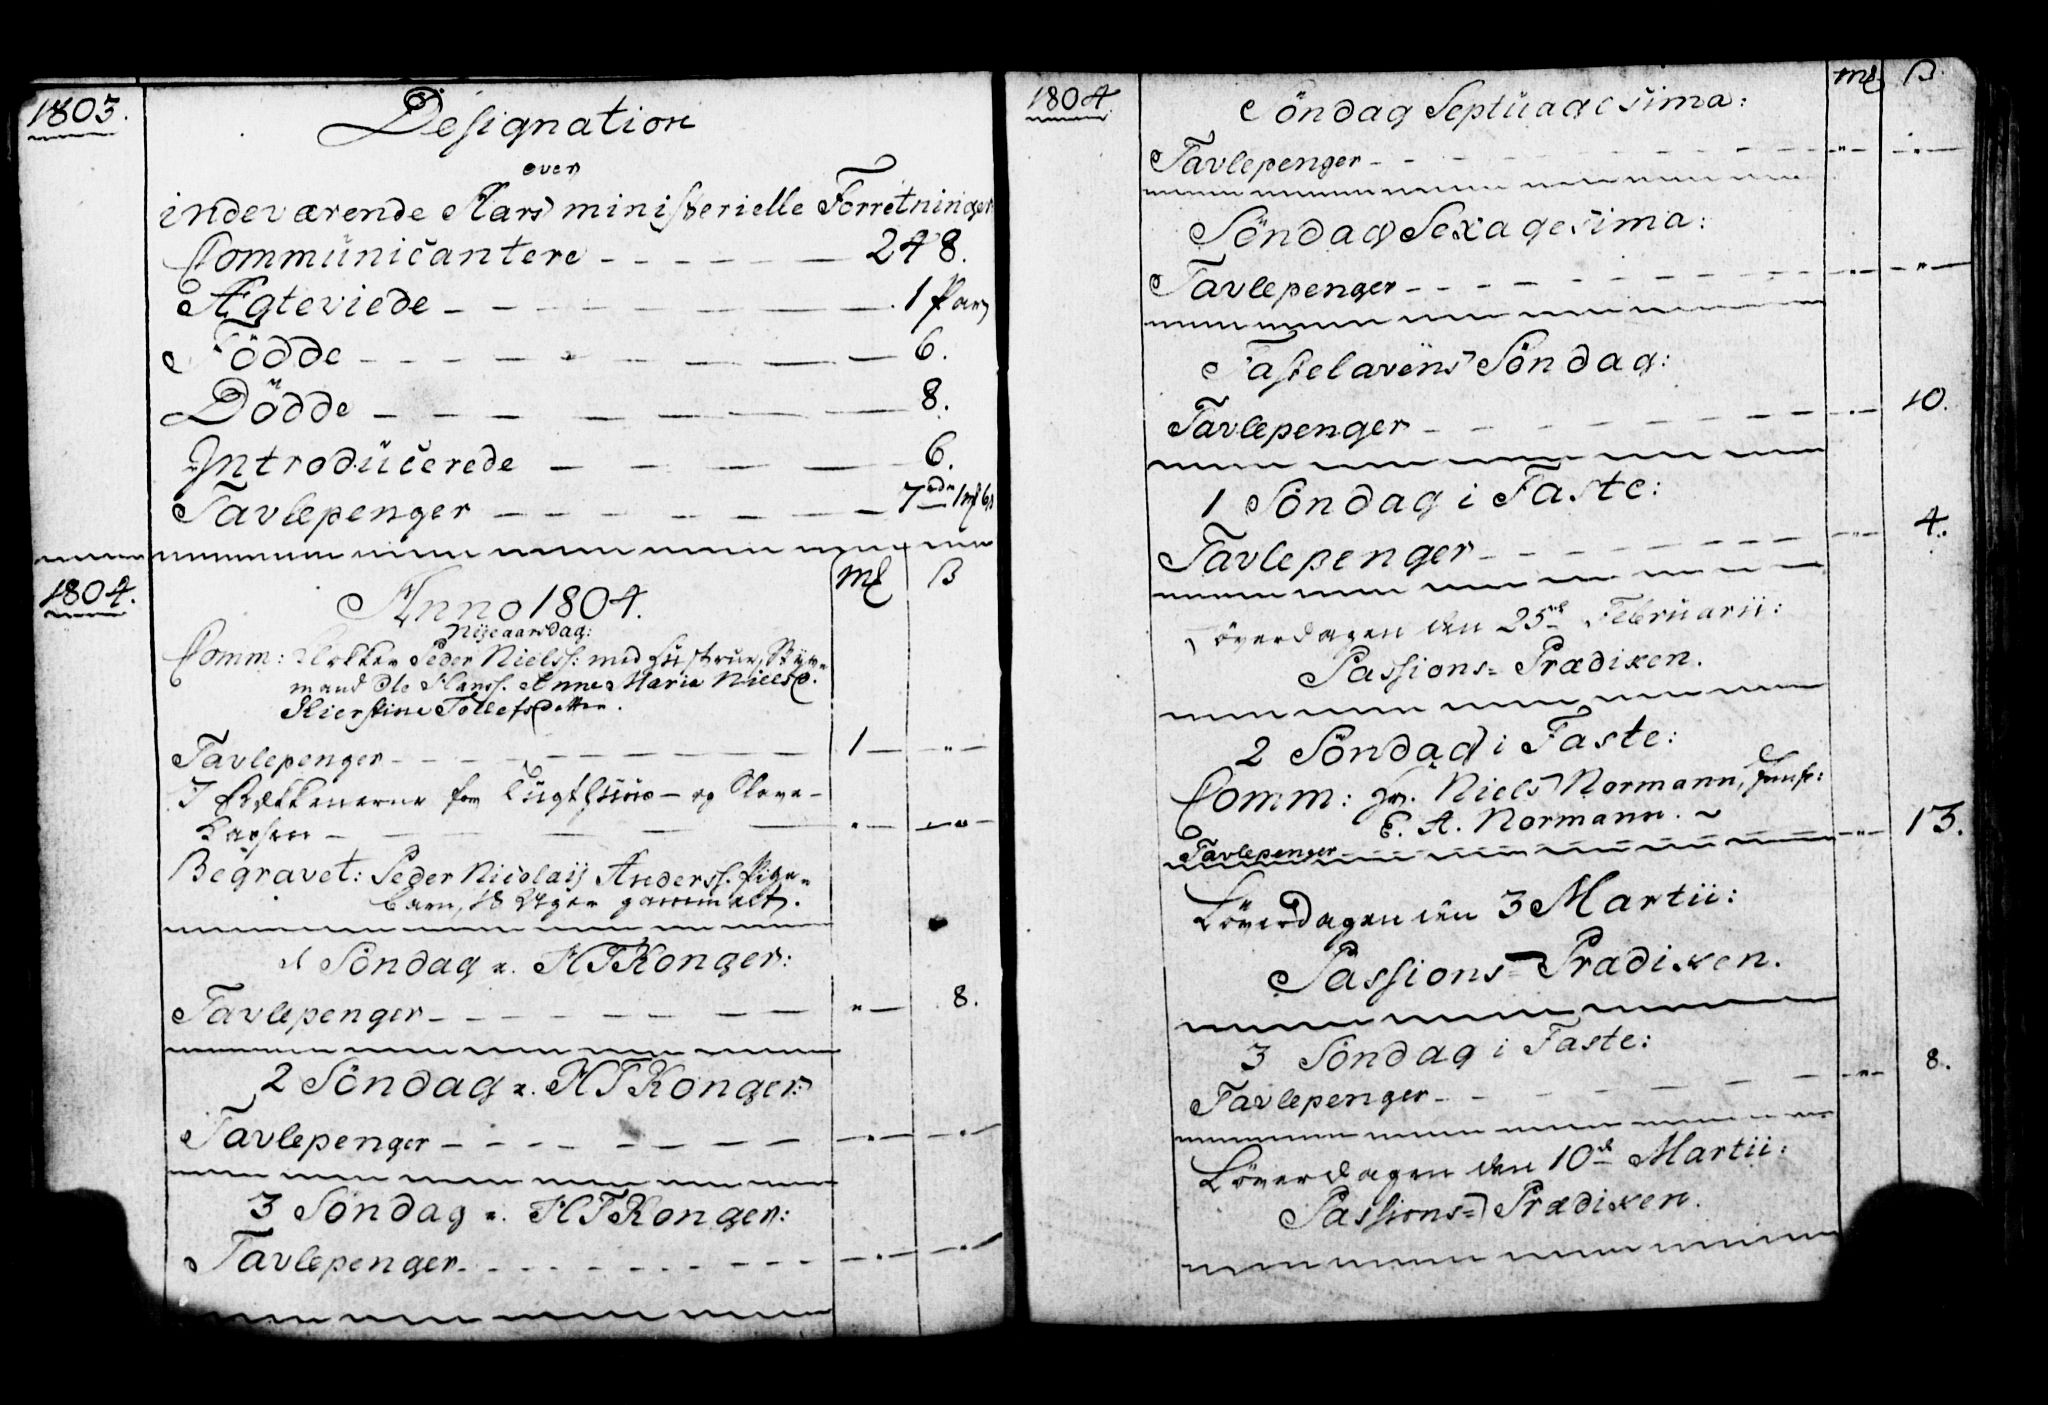 1803.
Designation
over
indeværende Aars ministerielle Forretninger
Communicantere — 248.
Ægteviede — 1 Par
Födde — 6.
Dödde — 8.
Introducerede — 6.
Tavlepenger — 7 rdr 1 mk 6 s
1804. Mk ß
Anno 1804.
Nyeaarsdag:
Comm: Klokker Peder Nielss: med Hustrue, Styr=
mand Ole Hanss. Anne Marie Nielsd.
Kierstine Tollefsdatter.
Tavlepenger — 1 — „ —
I Bækkenerne for Tugthuus — og Slave —
Kassen — „ — „
Begravet: Peder Nicolaij Anderss. Pige=
barn, 18 Uger gammelt.
1 Söndag e. H3Konger:
Tavlepenger — „ — 8.
2 Söndag e. H3Konger:
Tavlepenger — „ — „
3 Söndag e. H3Konger:
Tavlepenger — „ — „
1804. Mk ß
Söndag Septuagesima:
Tavlepenger — „ — „ —
Söndag Sexagesima:
Tavlepenger — „ — „ —
Fastelavens Söndag:
Tavlepenger — „ — 10.
1 Söndag i Faste:
Tavlepenger — „ — 4.
Löverdagen den 25de Februarii:
Passions= Prædiken.
2 Söndag i Faste:
Comm: Hr. Niels Normann, Jomfr:
E. A. Normann.
Tavlepenger — „ — 13.
Löverdagen den 3 Martii:
Passions= Prædiken.
3 Söndag i Faste:
Tavlepenger — „ — 8.
Löverdagen den 10de Martii:
Passions= Prædiken.